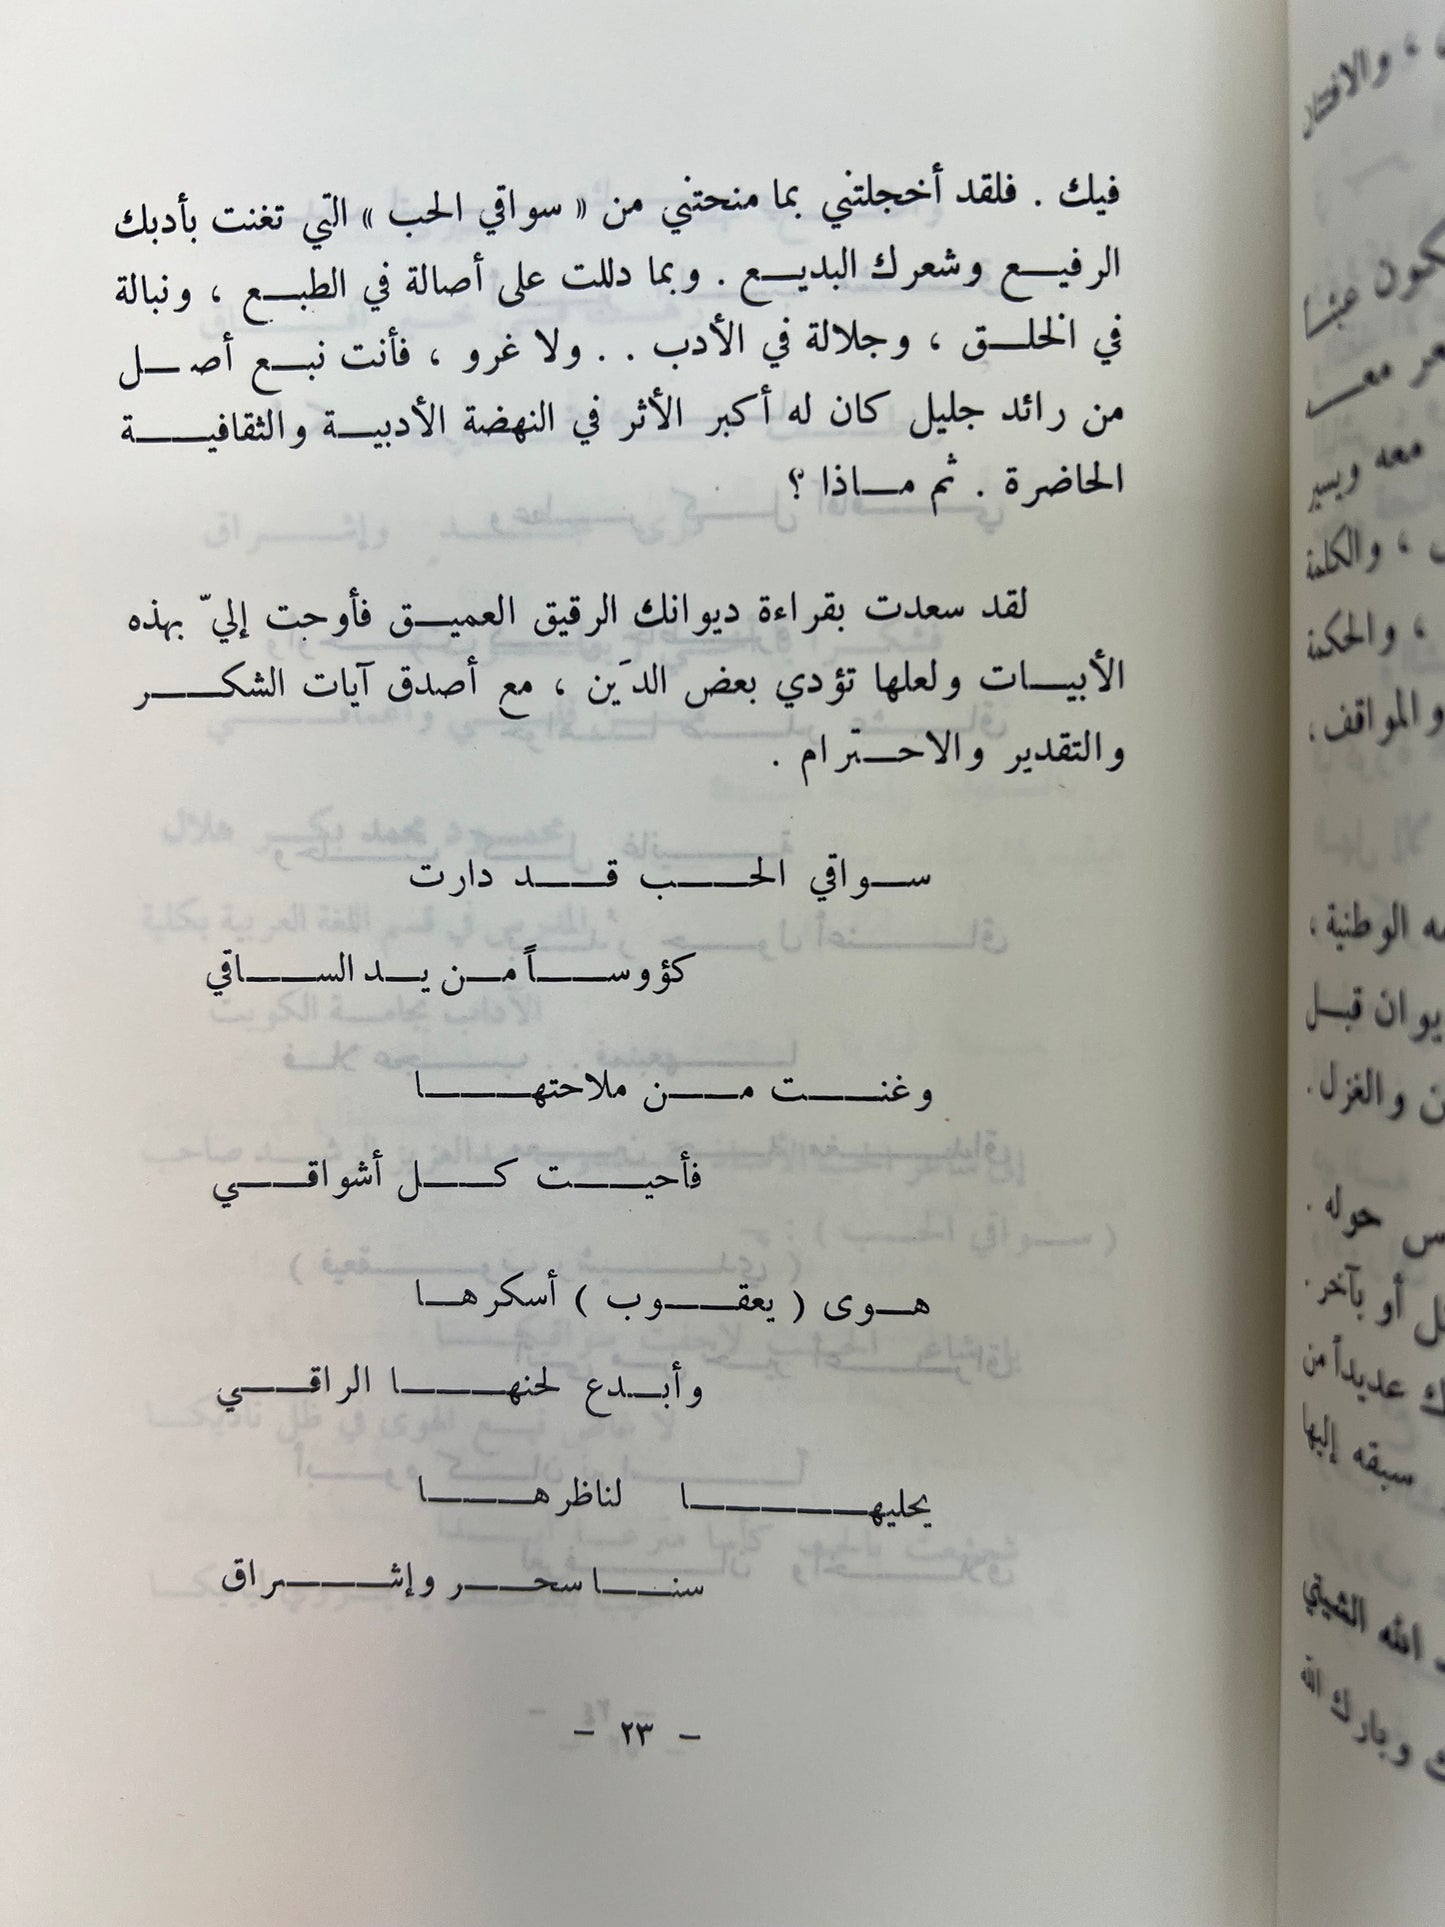 فيك . فلقد أخجلتني بما منحتني من « سواقي الحب » التي تغنت بأدبك
الرفيع وشعرك البديع . وبما دللت على أصالة في الطبع ، ونبالة
في الخلق ، وجلالة في الأدب . . ولا غرو ، فأنت نبع أصل
من رائد جليل كان له أكبر الأثر في النهضة الأدبية والثقافية
الحاضرة . ثم ماذا ؟
لقد سعدت بقراءة ديوانك الرقيق العميق فأوحت إليّ بهذه
الأبيات ولعلها تؤدي بعض الدَين ، مع أصدق آيات الشكر
والتقدير والاحترام .
سواقي الحب قد دارت
كؤوساً من يد الساقي
وغنت من ملاحتها
فأحيت كل أشواقي
هوى ( يعقوب ) أسكرها
وأبدع لحنها الراقي
يحليها لناظرها
سنا سحر وإشراق
- ٢٣ -
، والافتنان
معه ويسير
، والكلمة
، والحكمة
والمواقف ،
الوطنية ،
قبل
والغزل .
حوله .
أو بآخر .
عديداً من
سبقه إليها
الله الشيتي
وبارك الله